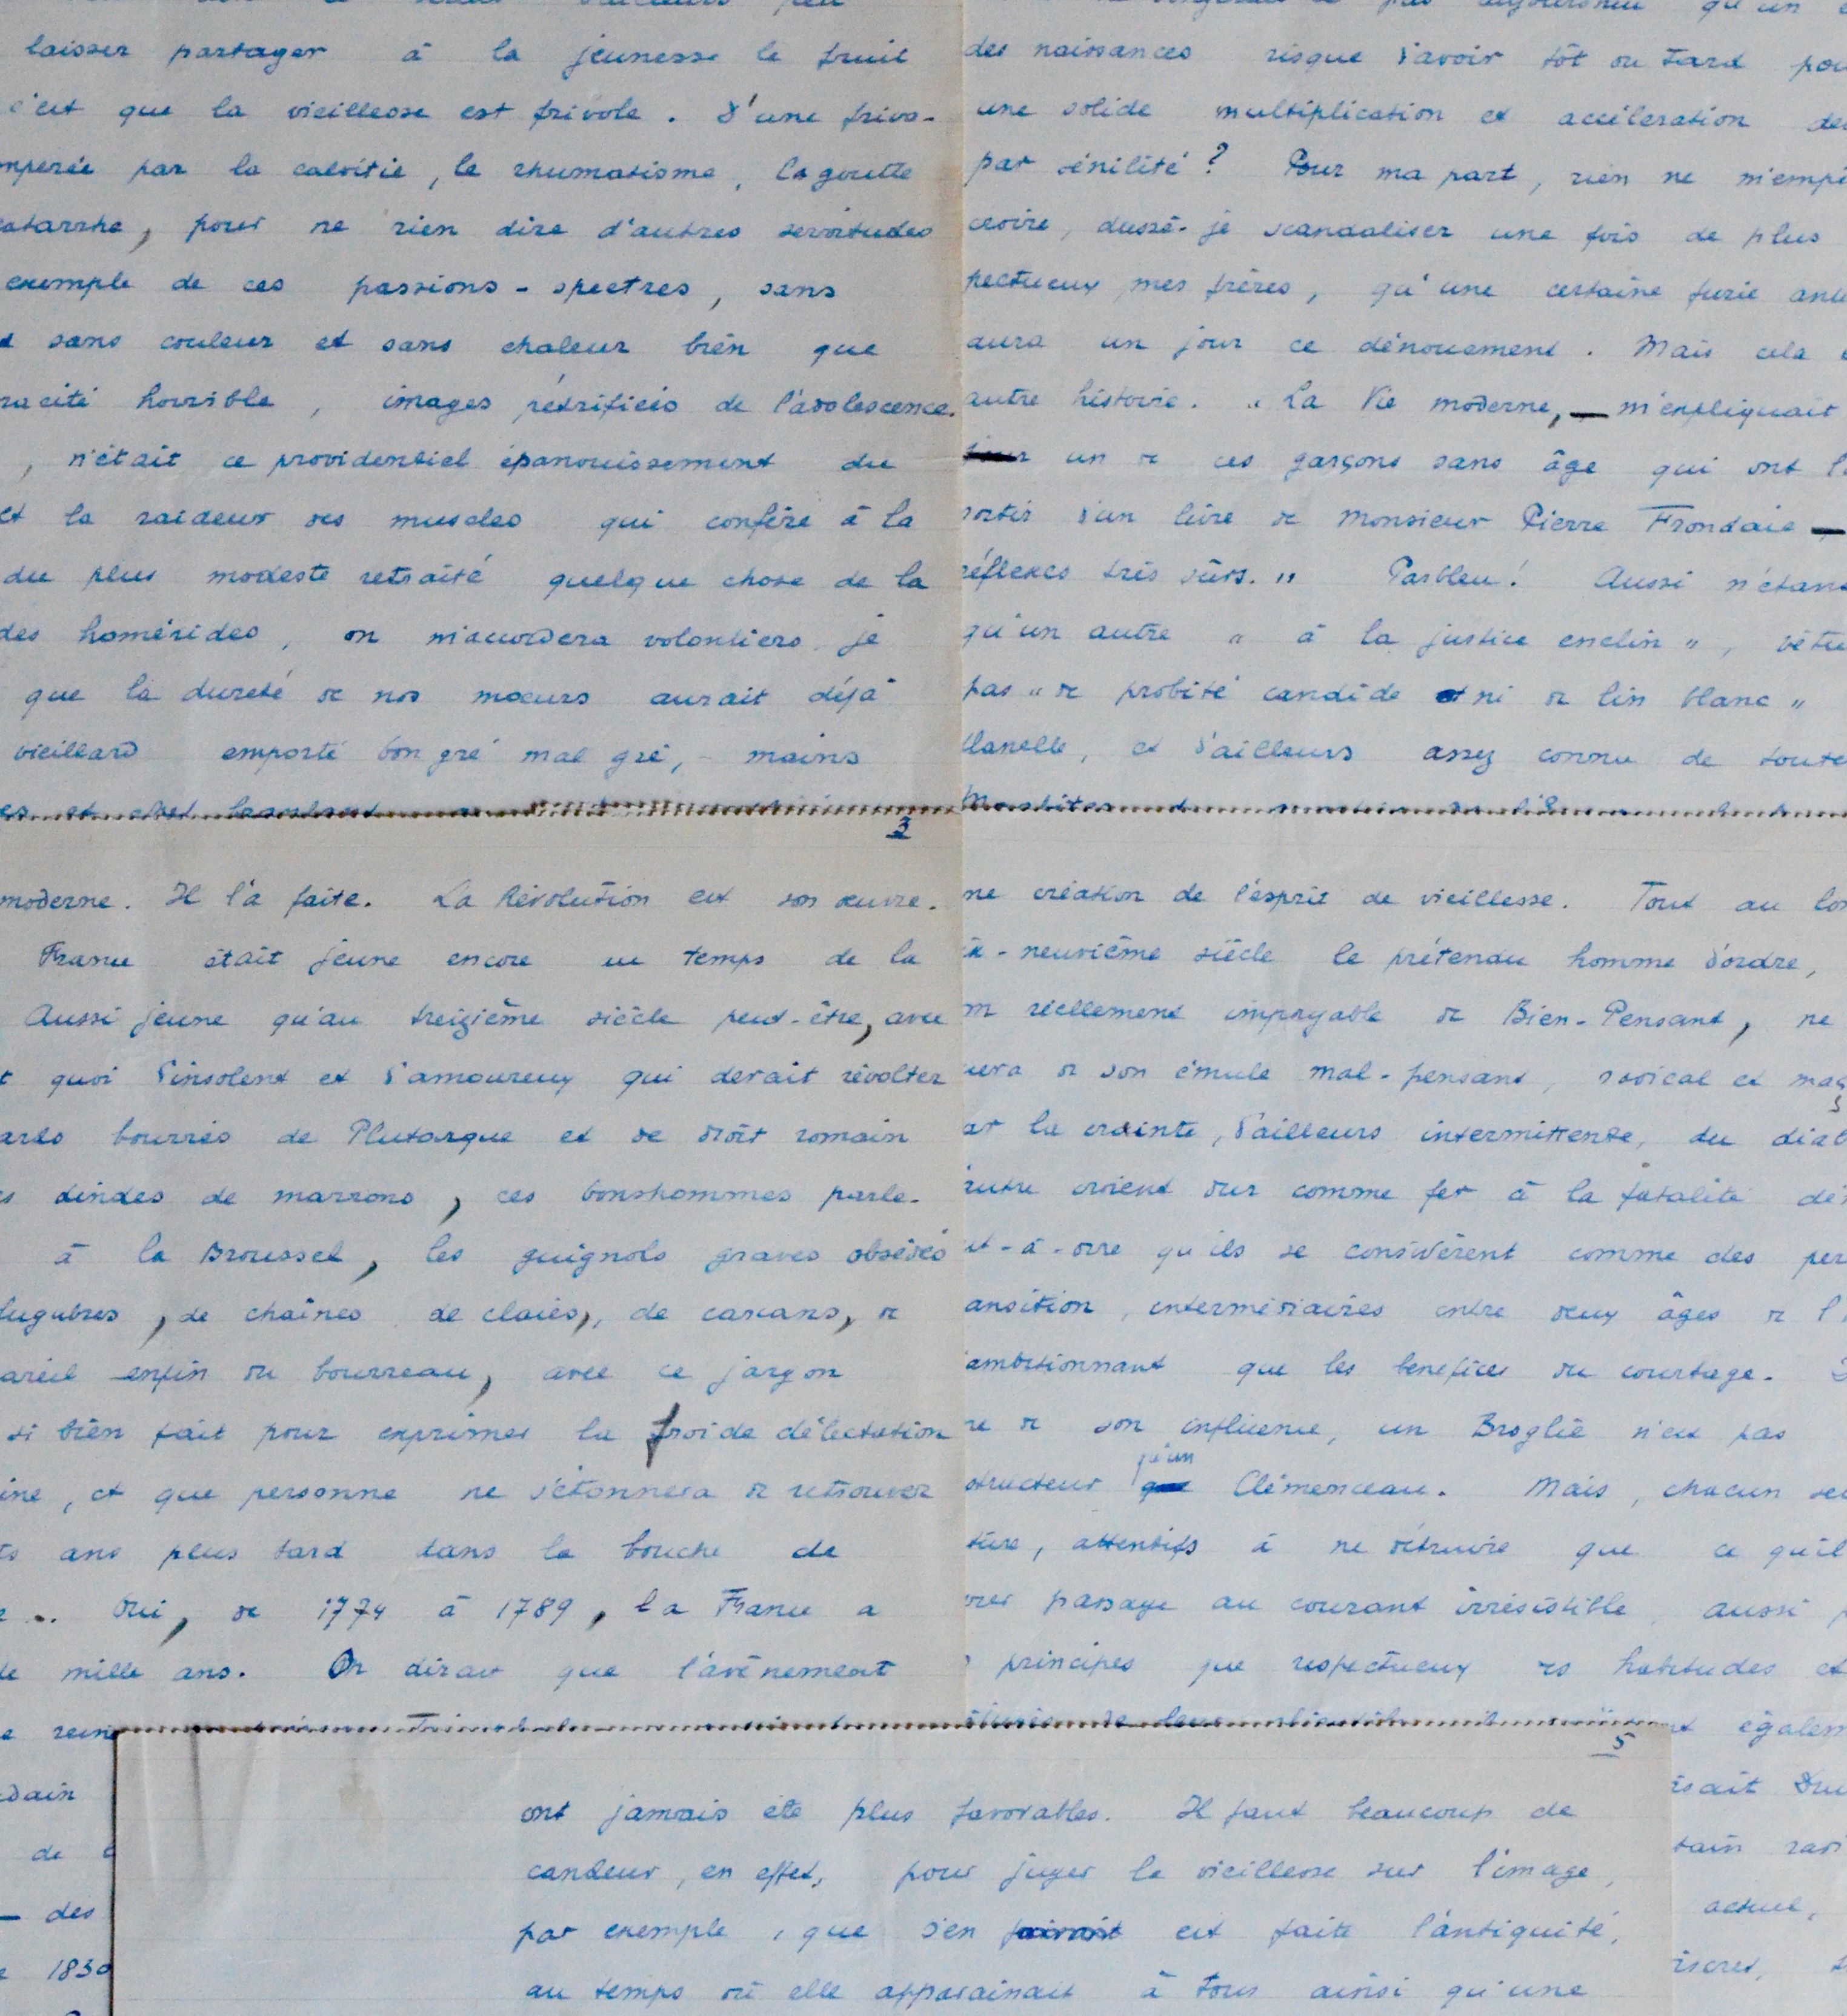 laisser partager à la jeunesse le fruit
c'est que la vieillesse est frivole. D'une frivo-
mperée par la calvitie, le rhumatisme, la goutte
catarrhe, pour ne rien dire d'autres servitudes
exemple de ces passions-spectres, sans
sans couleur et sans chaleur bien que
racité horrible, images pétrifiées de l'adolescence.
, n'était ce providentiel épanouissement du
et la raideur des muscles qui confère à la
du plus modeste retraité quelque chose de la
des homérides, on m'accordera volontiers je
que la dureté de nos moeurs aurait déjà
vieillard emporté bon gré mal gré, mains
des naissances risque d'avoir tôt ou tard pou
une solide multiplication et accélération de
par sénilité? Pour ma part, rien ne m'empê
croire, dussé-je scandaliser une fois de plus
pectueux, mes frères, qu'une certaine furie ani
aura un jour ce dénouement. Mais cela
autre histoire. "La Vie moderne, — m'expliquait
un de ces garçons sans âge qui ont l'
sortir d'un livre de Monsieur Pierre Frondaie —
réflexes très sûrs." Parbleu! Aussi n'étant
qu'un autre "à la justice enclin", vêtu
pas "de probité candide ni de lin blanc"
flanelle, et d'ailleurs assez connu de toute
3
moderne. Il l'a faite. La Révolution est son oeuvre.
France était jeune encore au temps de la
Aussi jeune qu'au treizième siècle peut-être, avec
t quoi d'insolent et d'amoureux qui devait révolter
ards bourrés de Plutarque et de droit romain
s dindes de marrons, ces bonshommes parle-
à la Broussel, les guignols graves obsédés
lugubres, de chaînes de claies, de carcans, de
areil enfin du bourreau, avec ce jargon
si bien fait pour exprimer la froide délectation
ine, et que personne ne s'étonnera de retrouver
ts ans plus tard dans la bouche de
.. Oui, de 1774 à 1789, la France a
de mille ans. On dirait que l'avènement
e rein
dain
de
— des
1830
ne création de l'esprit de vieillesse. Tout au lon
ix-neuvième siècle le prétendu homme d'ordre,
m réellement impayable de Bien-Pensant, ne
uera de son émule mal-pensant, radical et maç
ar la crainte, d'ailleurs intermittente, du diab
autre croient dur comme fer à la fatalité dé
st-à-dire qu'ils se considèrent comme des per
ansition, intermédiaires entre deux âges de l'
ambitionnant que les bénéfices du courtage.
re de son influence, un Broglie n'est pas
structeur qu'un Clémenceau. Mais, chacun se
ture, attentifs à ne détruire que ce qu'il
vrer passage au courant irrésistible, aussi
principes que respectueux des habitudes et
t égalem
isait Dru
tain rar
actuel,
iscret,
5
ont jamais été plus favorables. Il faut beaucoup de
candeur, en effet, pour juger la vieillesse sur l'image,
par exemple, que s'en est faite l'antiquité,
au temps où elle apparaissait à tous ainsi qu'une